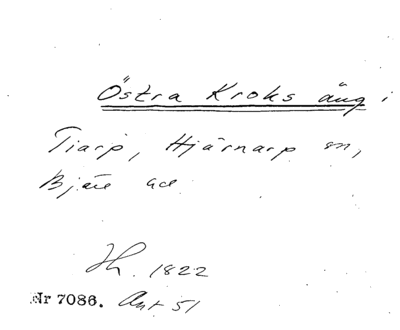 Östra Kroks äng i
Tiarp, Hjärnarp sn,
Bjäre hd
Jh. 1822
Nr 7086. Avt 51